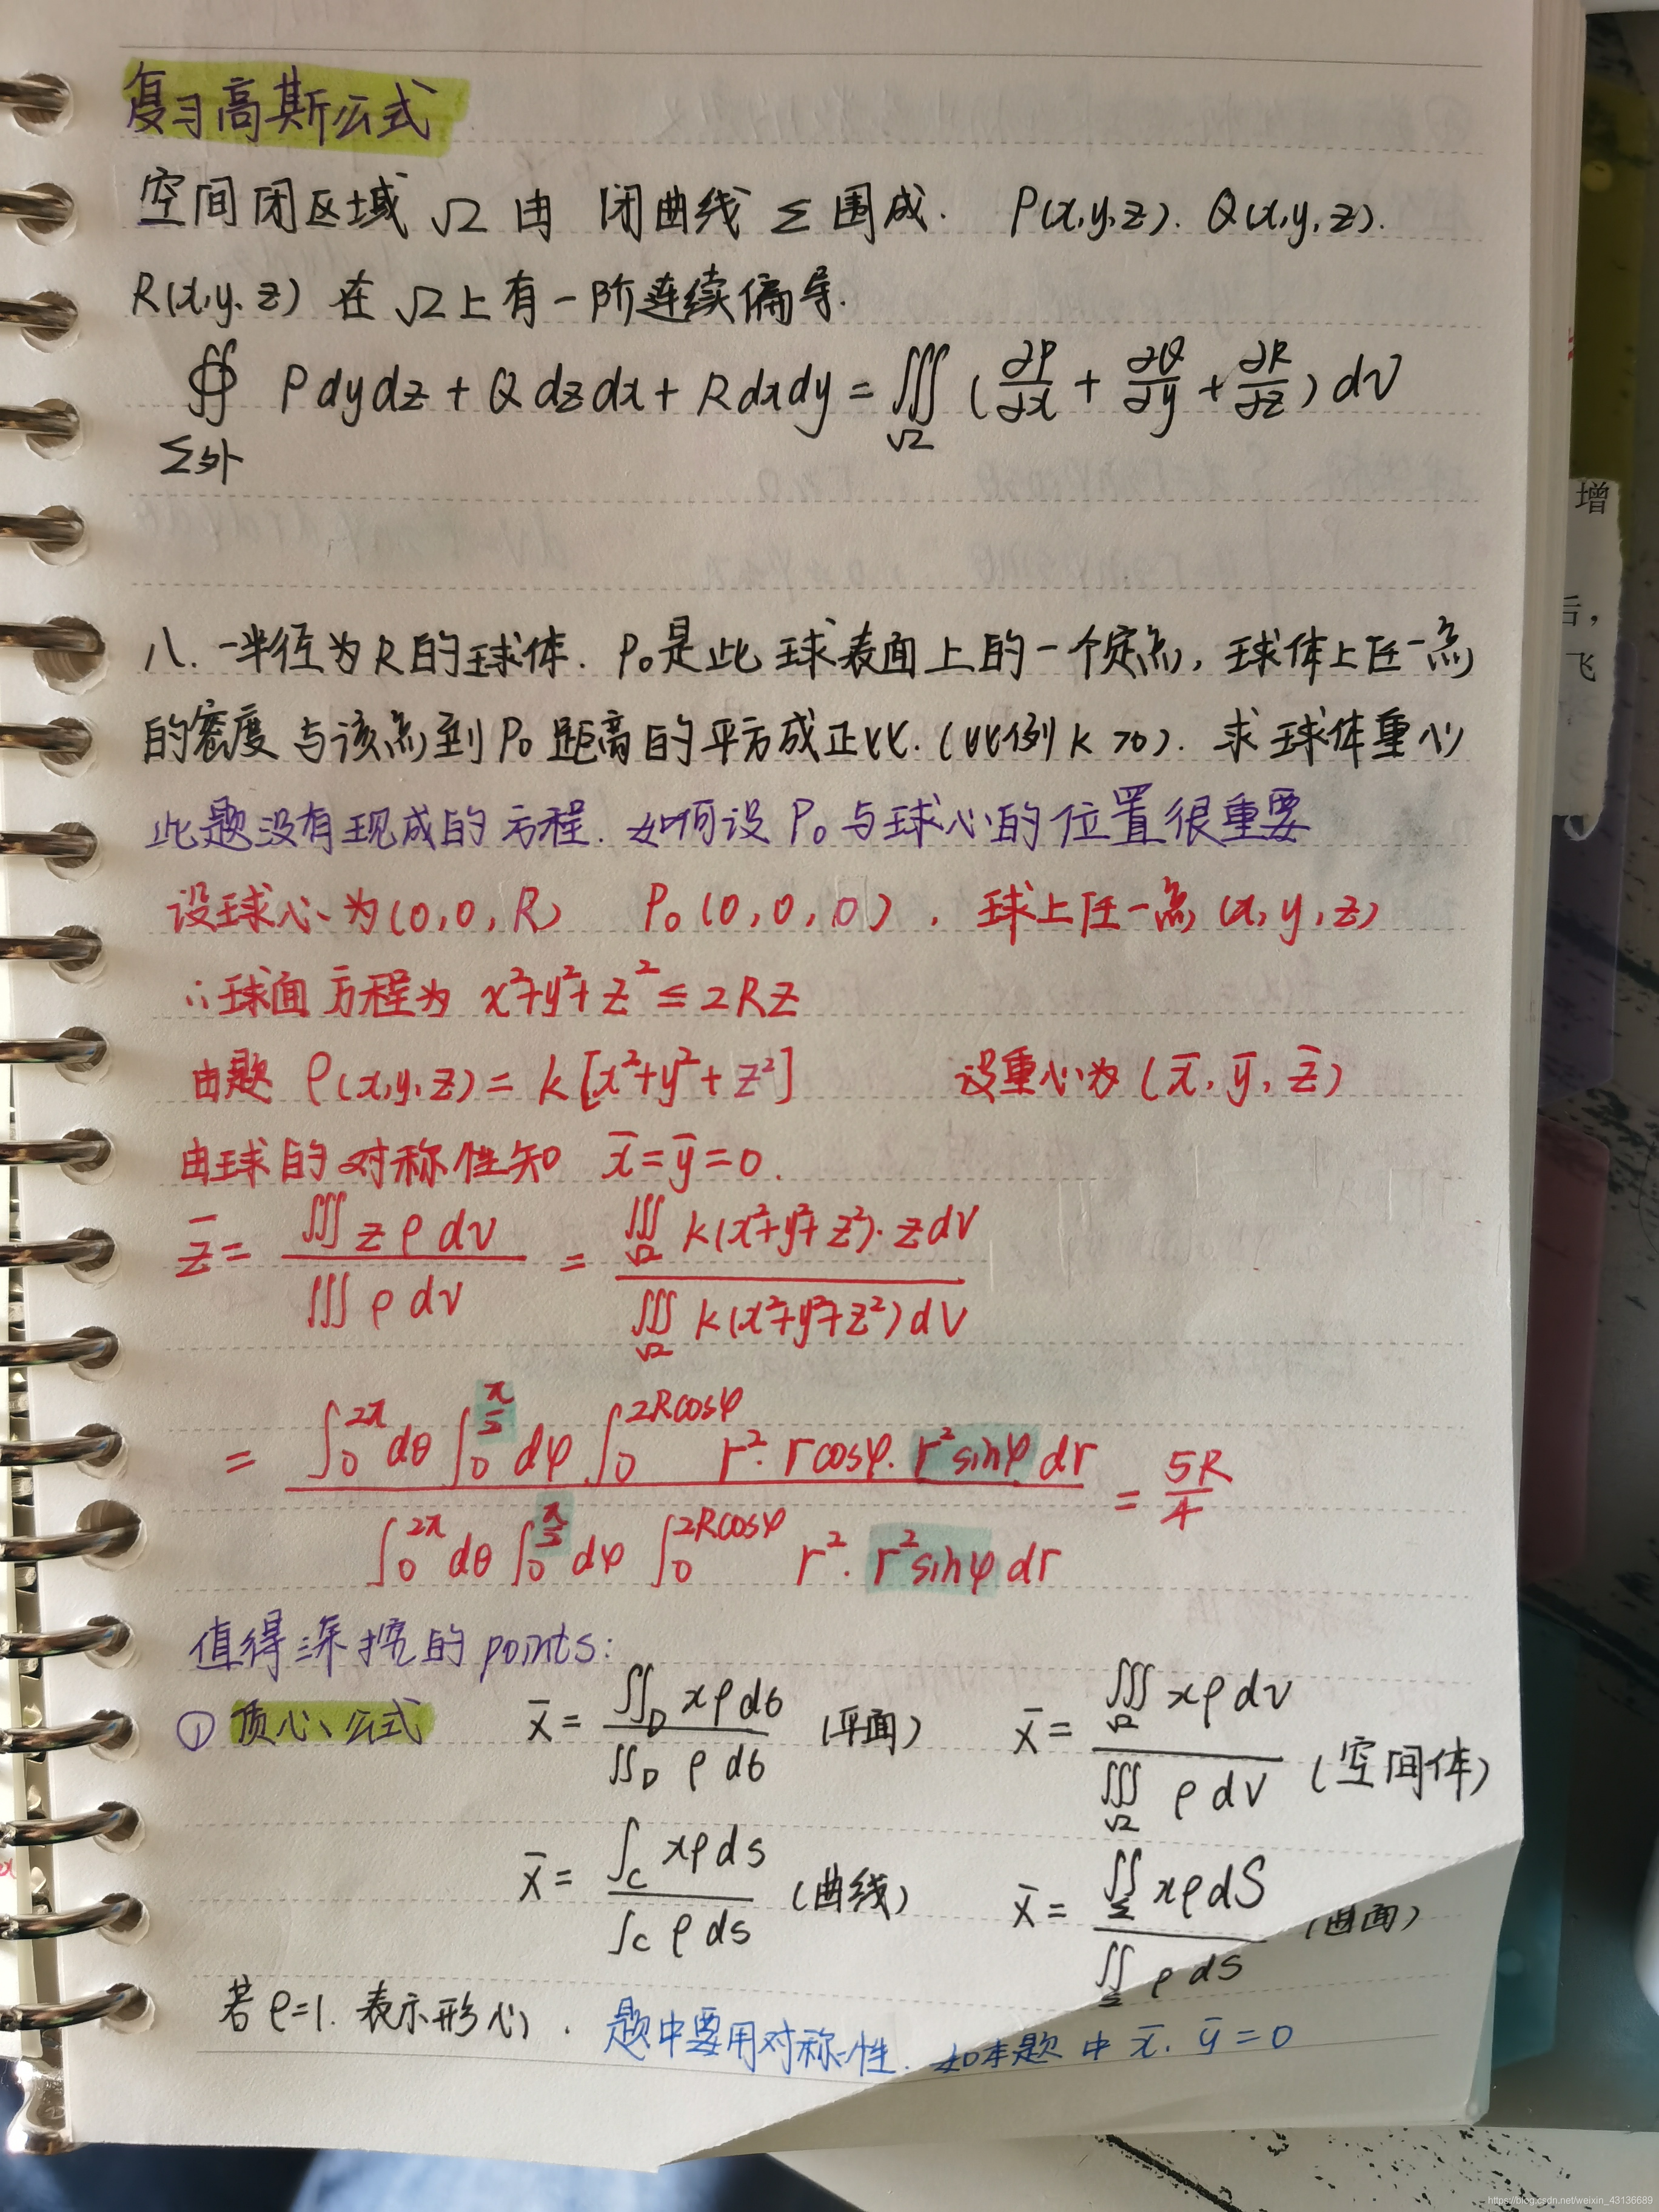 复习高斯公式
空间闭区域 Ω 由 闭曲线 Σ 围成. P(x,y,z). Q(x,y,z).
R(x,y,z) 在 Ω 上有一阶连续偏导.
∯ Pdydz + Qdzdx + Rdxdy = ∭ (∂P/∂x + ∂Q/∂y + ∂R/∂z) dV
Σ外 Ω
八. 一半径为R的球体. P₀是此球表面上的一个定点, 球体上任一点
的密度与该点到P₀距离的平方成正比.(比例k>0). 求球体重心
此题没有现成的方程. 如何设P₀与球心的位置很重要
设球心为(0,0,R) P₀(0,0,0), 球上任一点(x,y,z)
∴球面方程为 x²+y²+z² ≤ 2Rz
由题 ρ(x,y,z) = k[x²+y²+z²] 设重心为(x̄,ȳ,z̄)
由球的对称性知 x̄=ȳ=0.
z̄ = ∭zρdv / ∭ρdv = ∭_Ω k(x²+y²+z²)·zdV / ∭_Ω k(x²+y²+z²)dV
= ∫₀^{2π}dθ ∫₀^{π/2}dφ ∫₀^{2Rcosφ} r²·rcosφ·r²sinφdr / ∫₀^{2π}dθ ∫₀^{π/2}dφ ∫₀^{2Rcosφ} r²·r²sinφdr = 5R/4
值得深挖的points:
① 质心公式 x̄ = ∬_D xρdσ / ∬_D ρdσ (平面) x̄ = ∭_Ω xρdv / ∭_Ω ρdV (空间体)
x̄ = ∫_C xρds / ∫_C ρds (曲线) x̄ = ∬_Σ xρdS / ∬_Σ ρdS (曲面)
若ρ=1. 表示形心. 题中要用对称性. 如本题中 x̄.ȳ=0
增
后,
飞
https://blog.csdn.net/weixin_43136689